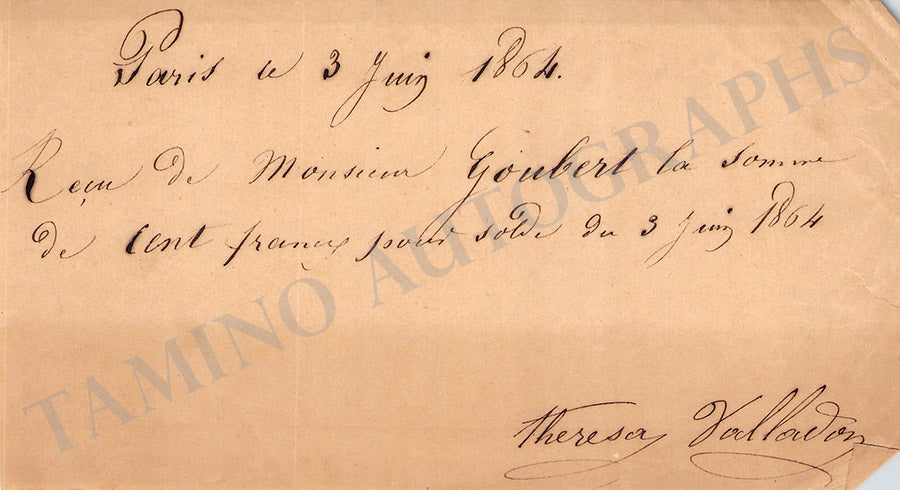 Paris le 3 Juin 1864.
Reçu de Monsieur Goubert la somme
de cent francs pour solde du 3 Juin 1864
theresa Valladon
TAMINO AUTOGRAPHS